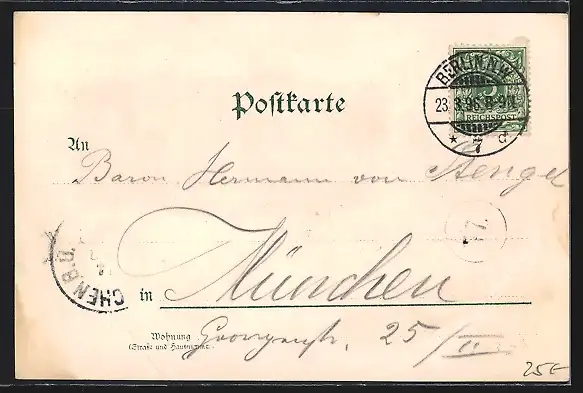 BERLIN, N.W.
23.3.96. 8-9 N.
* 7 d
5
REICHSPOST
Postkarte
An
Baron Hermann von Stengel
CHEN B.O.
in München
Wohnung
(Straße und Hausnummer)
Georgenstr. 25/II
25E